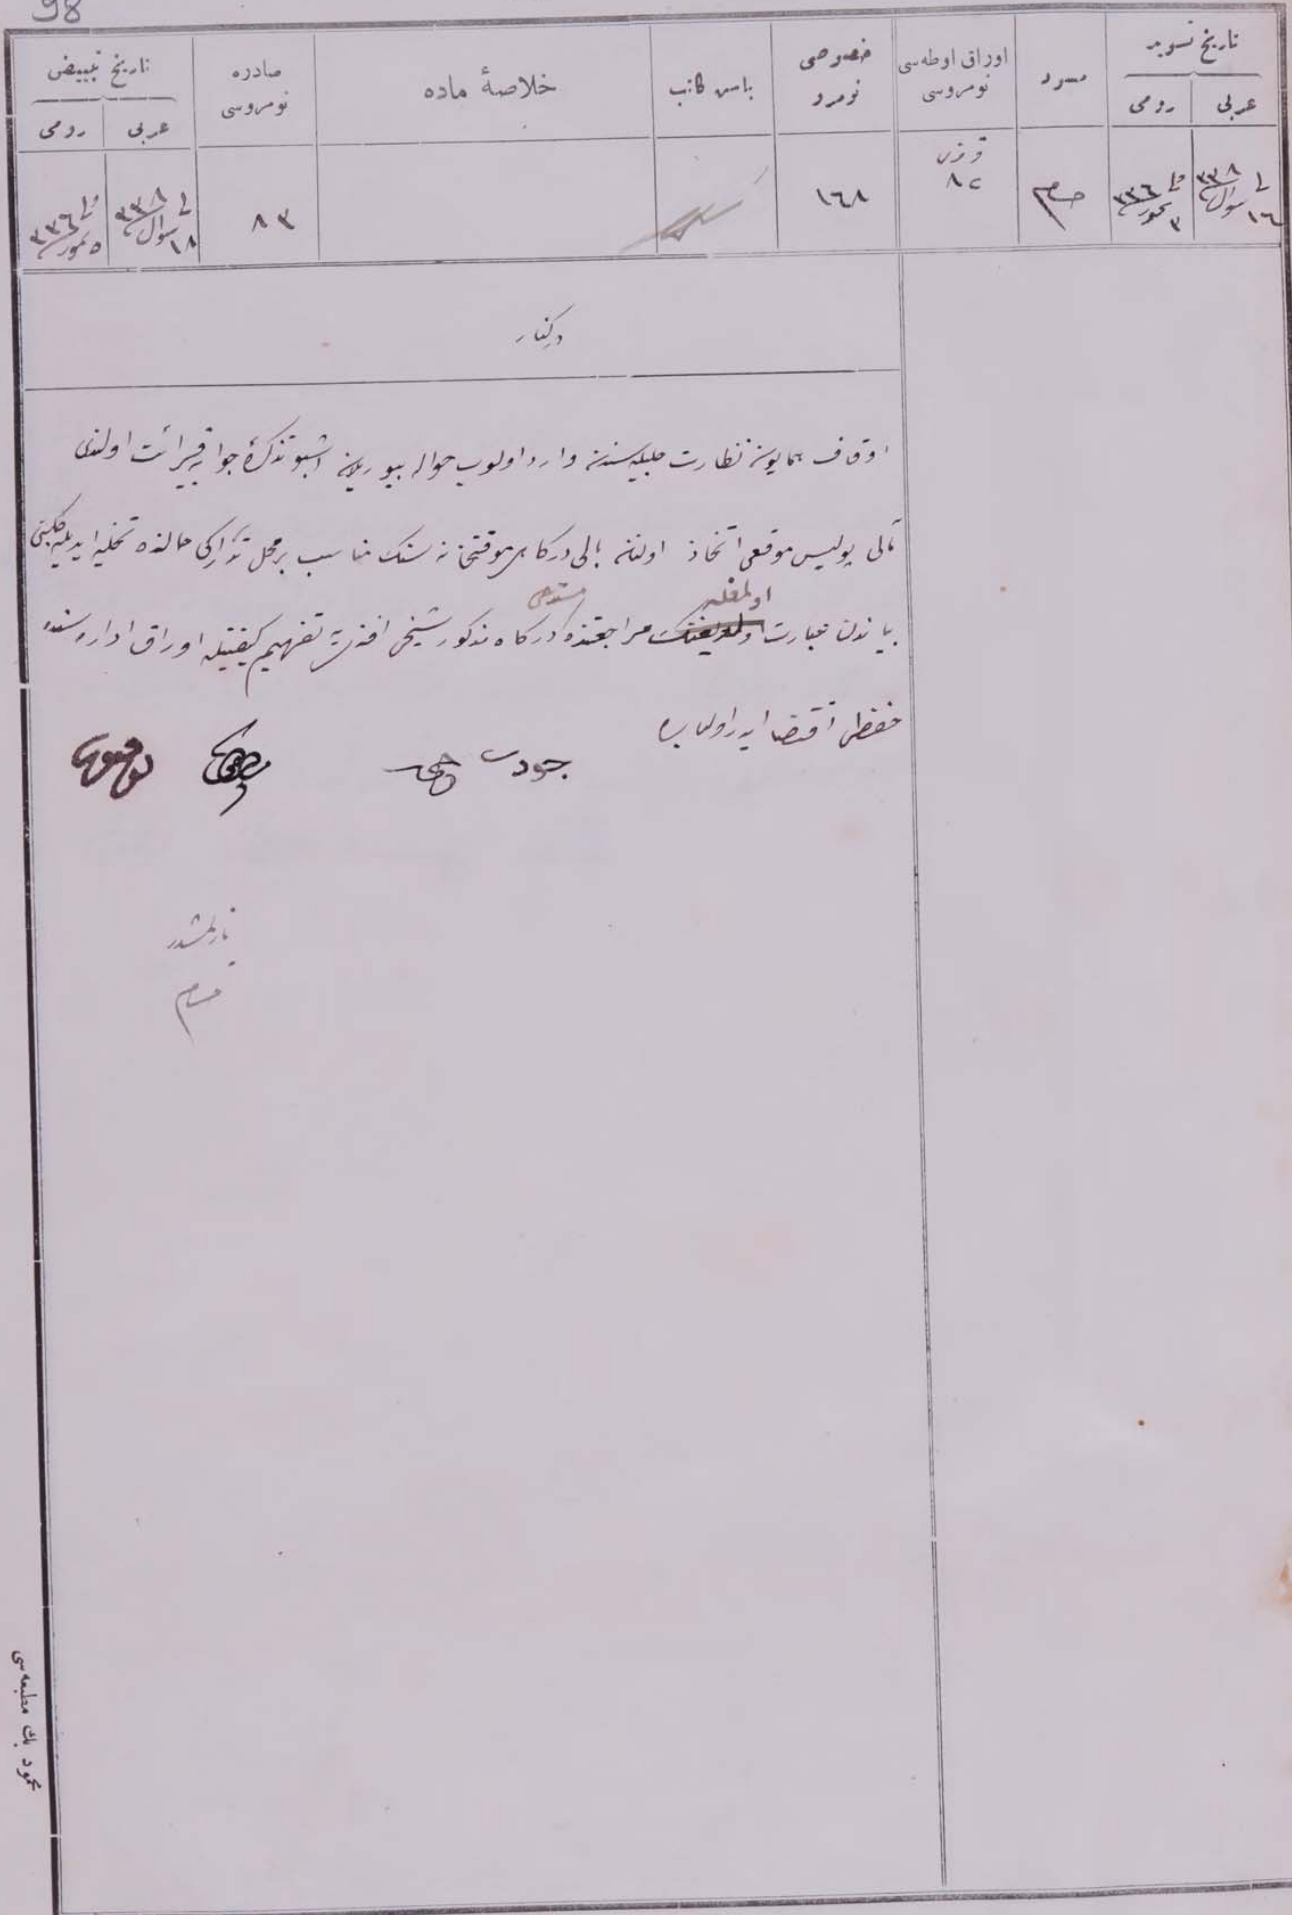 98
تاريخ تسويد
عربی
رومی
مسود
اوراق اوطه‌سی نومروسی
خصوصی نومرو
خلاصهٔ ماده
صادره نومروسی
تاريخ تبييض
عربی
رومی
١٦ شوال ٣٣٨
٣ تموز ٣٣٦
٨٢
١٦٨
٨٣
١٨ شوال ٣٣٨
٥ تموز ٣٣٦
دركنار
اوقاف همايون نظارت جليله‌سندن وارد اولوب حواله بيوريلان اشبو تذكرهٔ جوابيه قرائت اولندی
مآلی پوليس موقعی اتخاذ اولنان بالی دركاهی موقتخانه‌سنك مناسب بر محل تداركی حالنده تخليه ايديله‌جكی
اولمغله
بياندن عبارت مراجعتنده دركاه مذكور شيخی افندی‌يه تفهيم كيفيتله اوراق اداره‌سنده
حفظی اقتضا ايدر اولبابده
جودت
يازلمشدر
محمود بك مطبعه‌سی